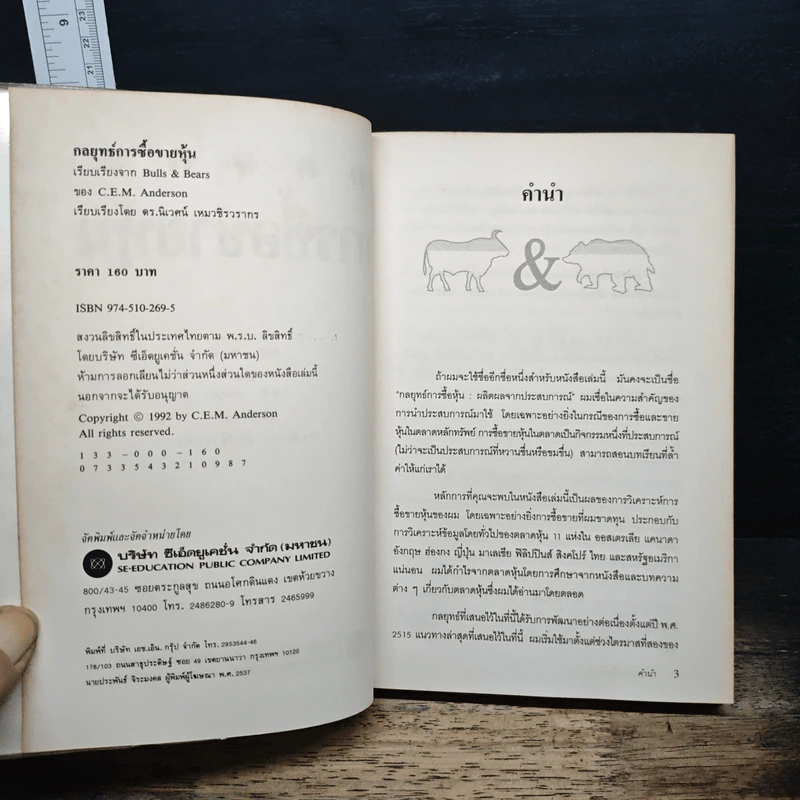 9
23
22
21
กลยุทธ์การซื้อขายหุ้น
เรียบเรียงจาก Bulls & Bears
ของ C.E.M. Anderson
เรียบเรียงโดย ดร.นิเวศน์ เหมวชิรวรากร
ราคา 160 บาท
ISBN 974-510-269-5
สงวนลิขสิทธิ์ในประเทศไทยตาม พ.ร.บ. ลิขสิทธิ์
โดยบริษัท ซีเอ็ดยูเคชั่น จำกัด (มหาชน)
ห้ามการลอกเลียนไม่ว่าส่วนหนึ่งส่วนใดของหนังสือเล่มนี้
นอกจากจะได้รับอนุญาต
Copyright © 1992 by C.E.M. Anderson
All rights reserved.
1 3 3 - 0 0 0 - 1 6 0
0 7 3 3 5 4 3 2 1 0 9 8 7
จัดพิมพ์และจัดจำหน่ายโดย
บริษัท ซีเอ็ดยูเคชั่น จำกัด (มหาชน)
SE-EDUCATION PUBLIC COMPANY LIMITED
800/43-45 ซอยตระกูลสุข ถนนอโศกดินแดง เขตห้วยขวาง
กรุงเทพฯ 10400 โทร. 2486280-9 โทรสาร 2465999
พิมพ์ที่ บริษัท เอช.เอ็น. กรุ๊ป จำกัด โทร. 2953544-46
178/103 ถนนสาธุประดิษฐ์ ซอย 49 เขตยานนาวา กรุงเทพฯ 10120
นายประพันธ์ จิระมงคล ผู้พิมพ์ผู้โฆษณา พ.ศ. 2537
คำนำ
&
ถ้าผมจะใช้ชื่ออีกชื่อหนึ่งสำหรับหนังสือเล่มนี้ มันคงจะเป็นชื่อ
"กลยุทธ์การซื้อหุ้น : ผลิตผลจากประสบการณ์" ผมเชื่อในความสำคัญของ
การนำประสบการณ์มาใช้ โดยเฉพาะอย่างยิ่งในกรณีของการซื้อและขาย
หุ้นในตลาดหลักทรัพย์ การซื้อขายหุ้นในตลาดเป็นกิจกรรมหนึ่งที่ประสบการณ์
(ไม่ว่าจะเป็นประสบการณ์ที่หวานชื่นหรือขมขื่น) สามารถสอนบทเรียนที่ล้ำ
ค่าให้แก่เราได้
หลักการที่คุณจะพบในหนังสือเล่มนี้เป็นผลของการวิเคราะห์การ
ซื้อขายหุ้นของผม โดยเฉพาะอย่างยิ่งการซื้อขายที่ผมขาดทุน ประกอบกับ
การวิเคราะห์ข้อมูลโดยทั่วไปของตลาดหุ้น 11 แห่งใน ออสเตรเลีย แคนาดา
อังกฤษ ฮ่องกง ญี่ปุ่น มาเลเซีย ฟิลิปปินส์ สิงคโปร์ ไทย และสหรัฐอเมริกา
แน่นอน ผมได้กำไรจากตลาดหุ้นโดยการศึกษาจากหนังสือและบทความ
ต่าง ๆ เกี่ยวกับตลาดหุ้นซึ่งผมได้อ่านมาโดยตลอด
กลยุทธ์ที่เสนอไว้ในที่นี้ได้รับการพัฒนาอย่างต่อเนื่องตั้งแต่ปี พ.ศ.
2515 แนวทางล่าสุดที่เสนอไว้ในที่นี้ ผมเริ่มใช้มาตั้งแต่ช่วงไตรมาสที่สองของ
คำนำ 3